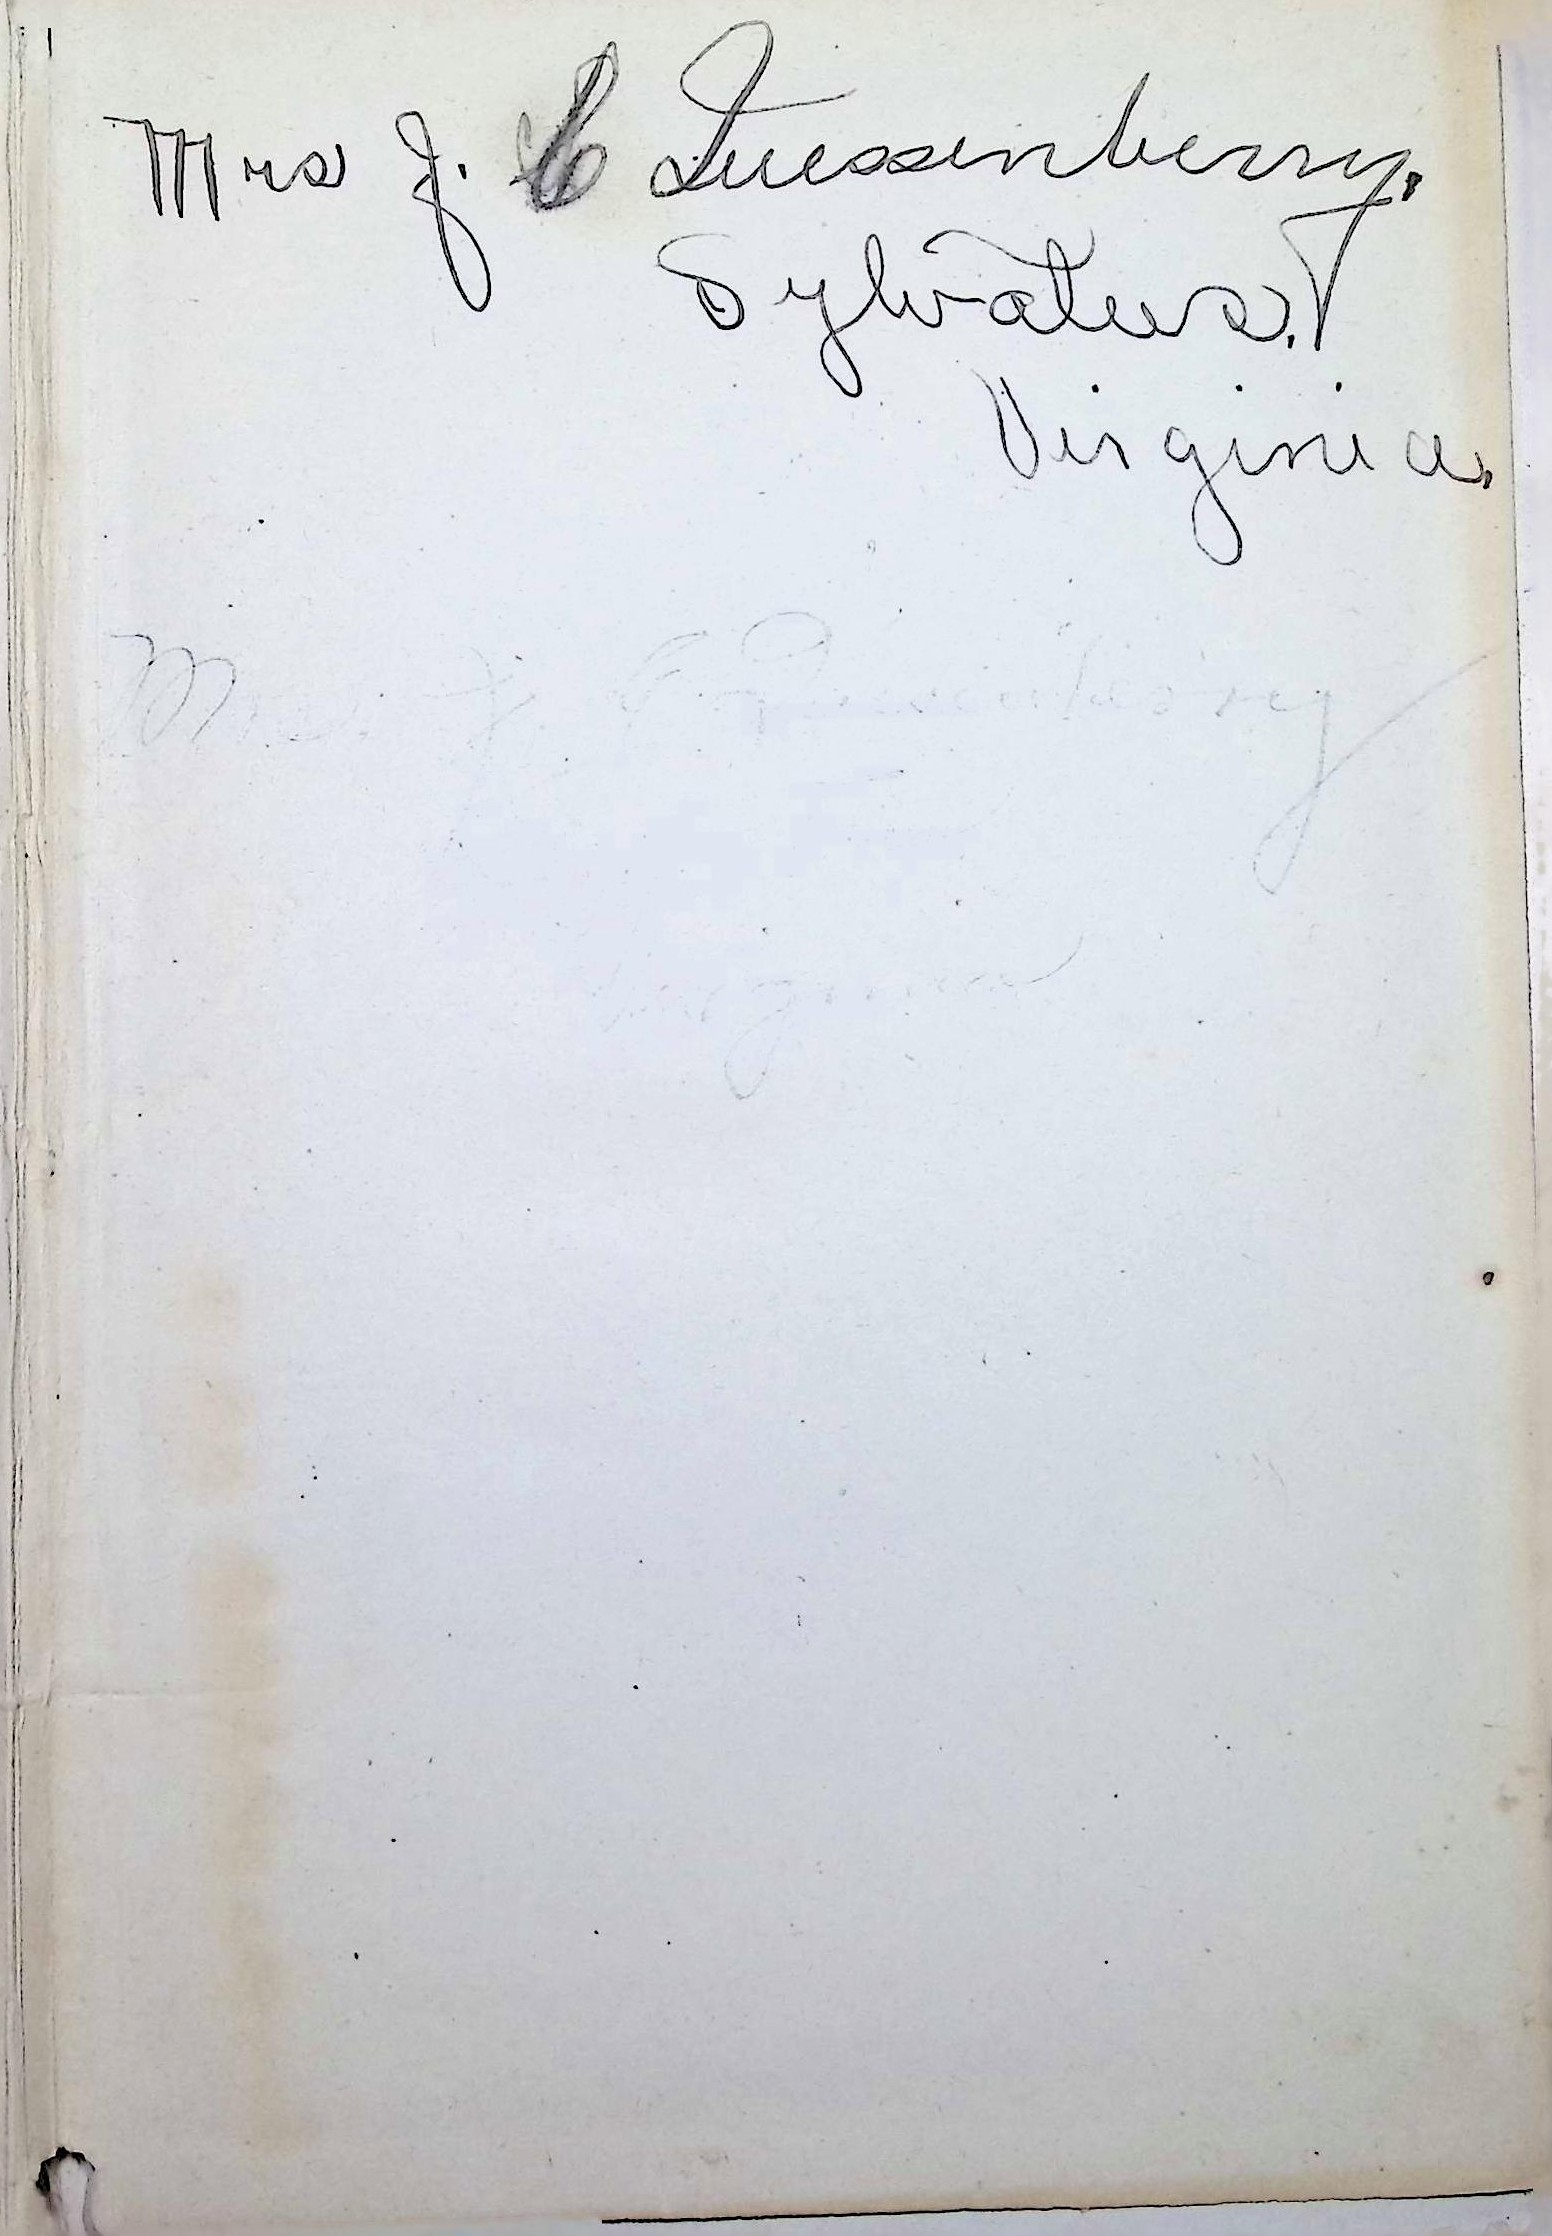 Mrs J. C Quessenberry.
Sylvatus.
Virginia.
Mrs J. C Quesenberry
Virginia